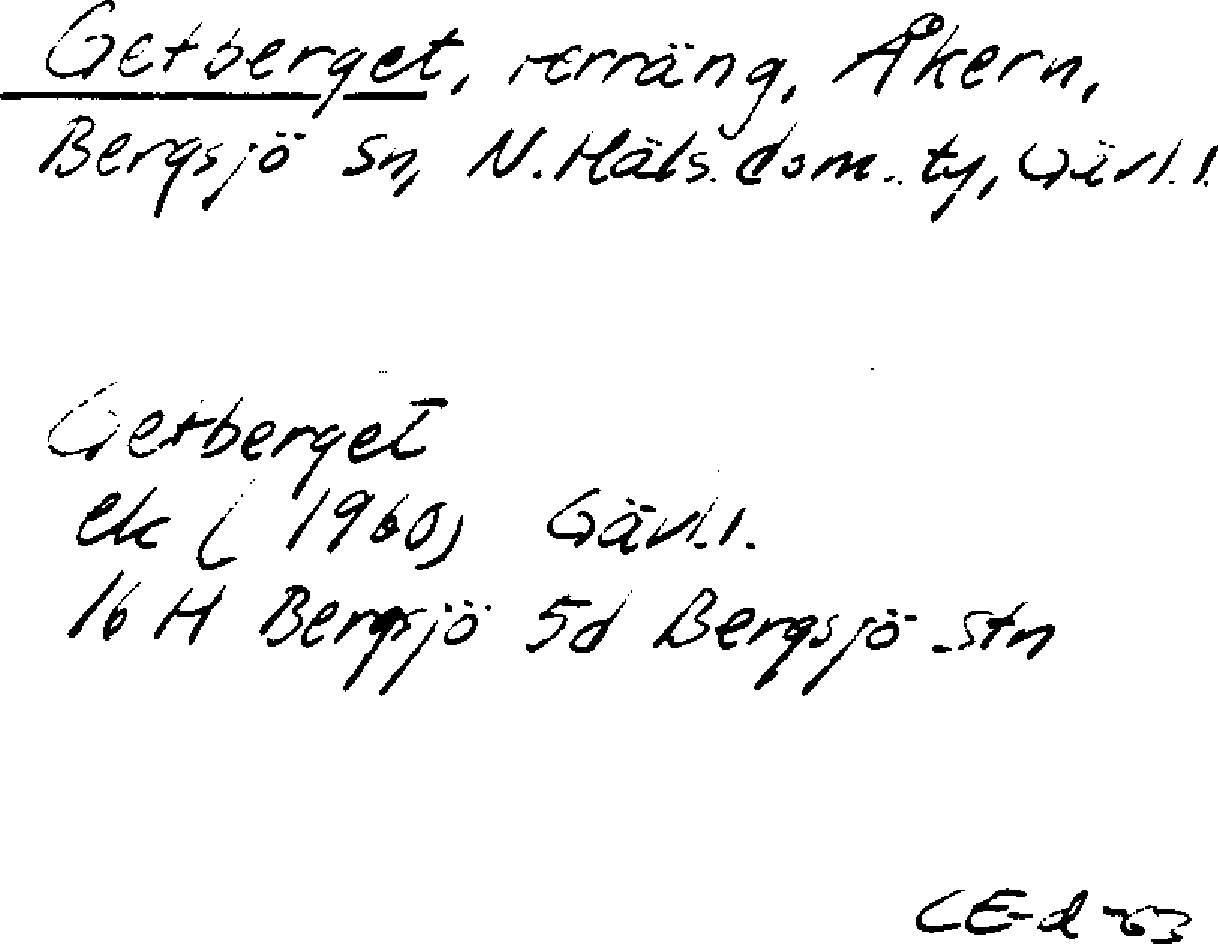 Getberget, terräng, Åkern,
Bergsjö sn, N.Häls.dom. ty, Gävl.l.
Getberget
ek (1960) Gävl.l.
16 H Bergsjö 5d Bergsjö stn
CE-d -63